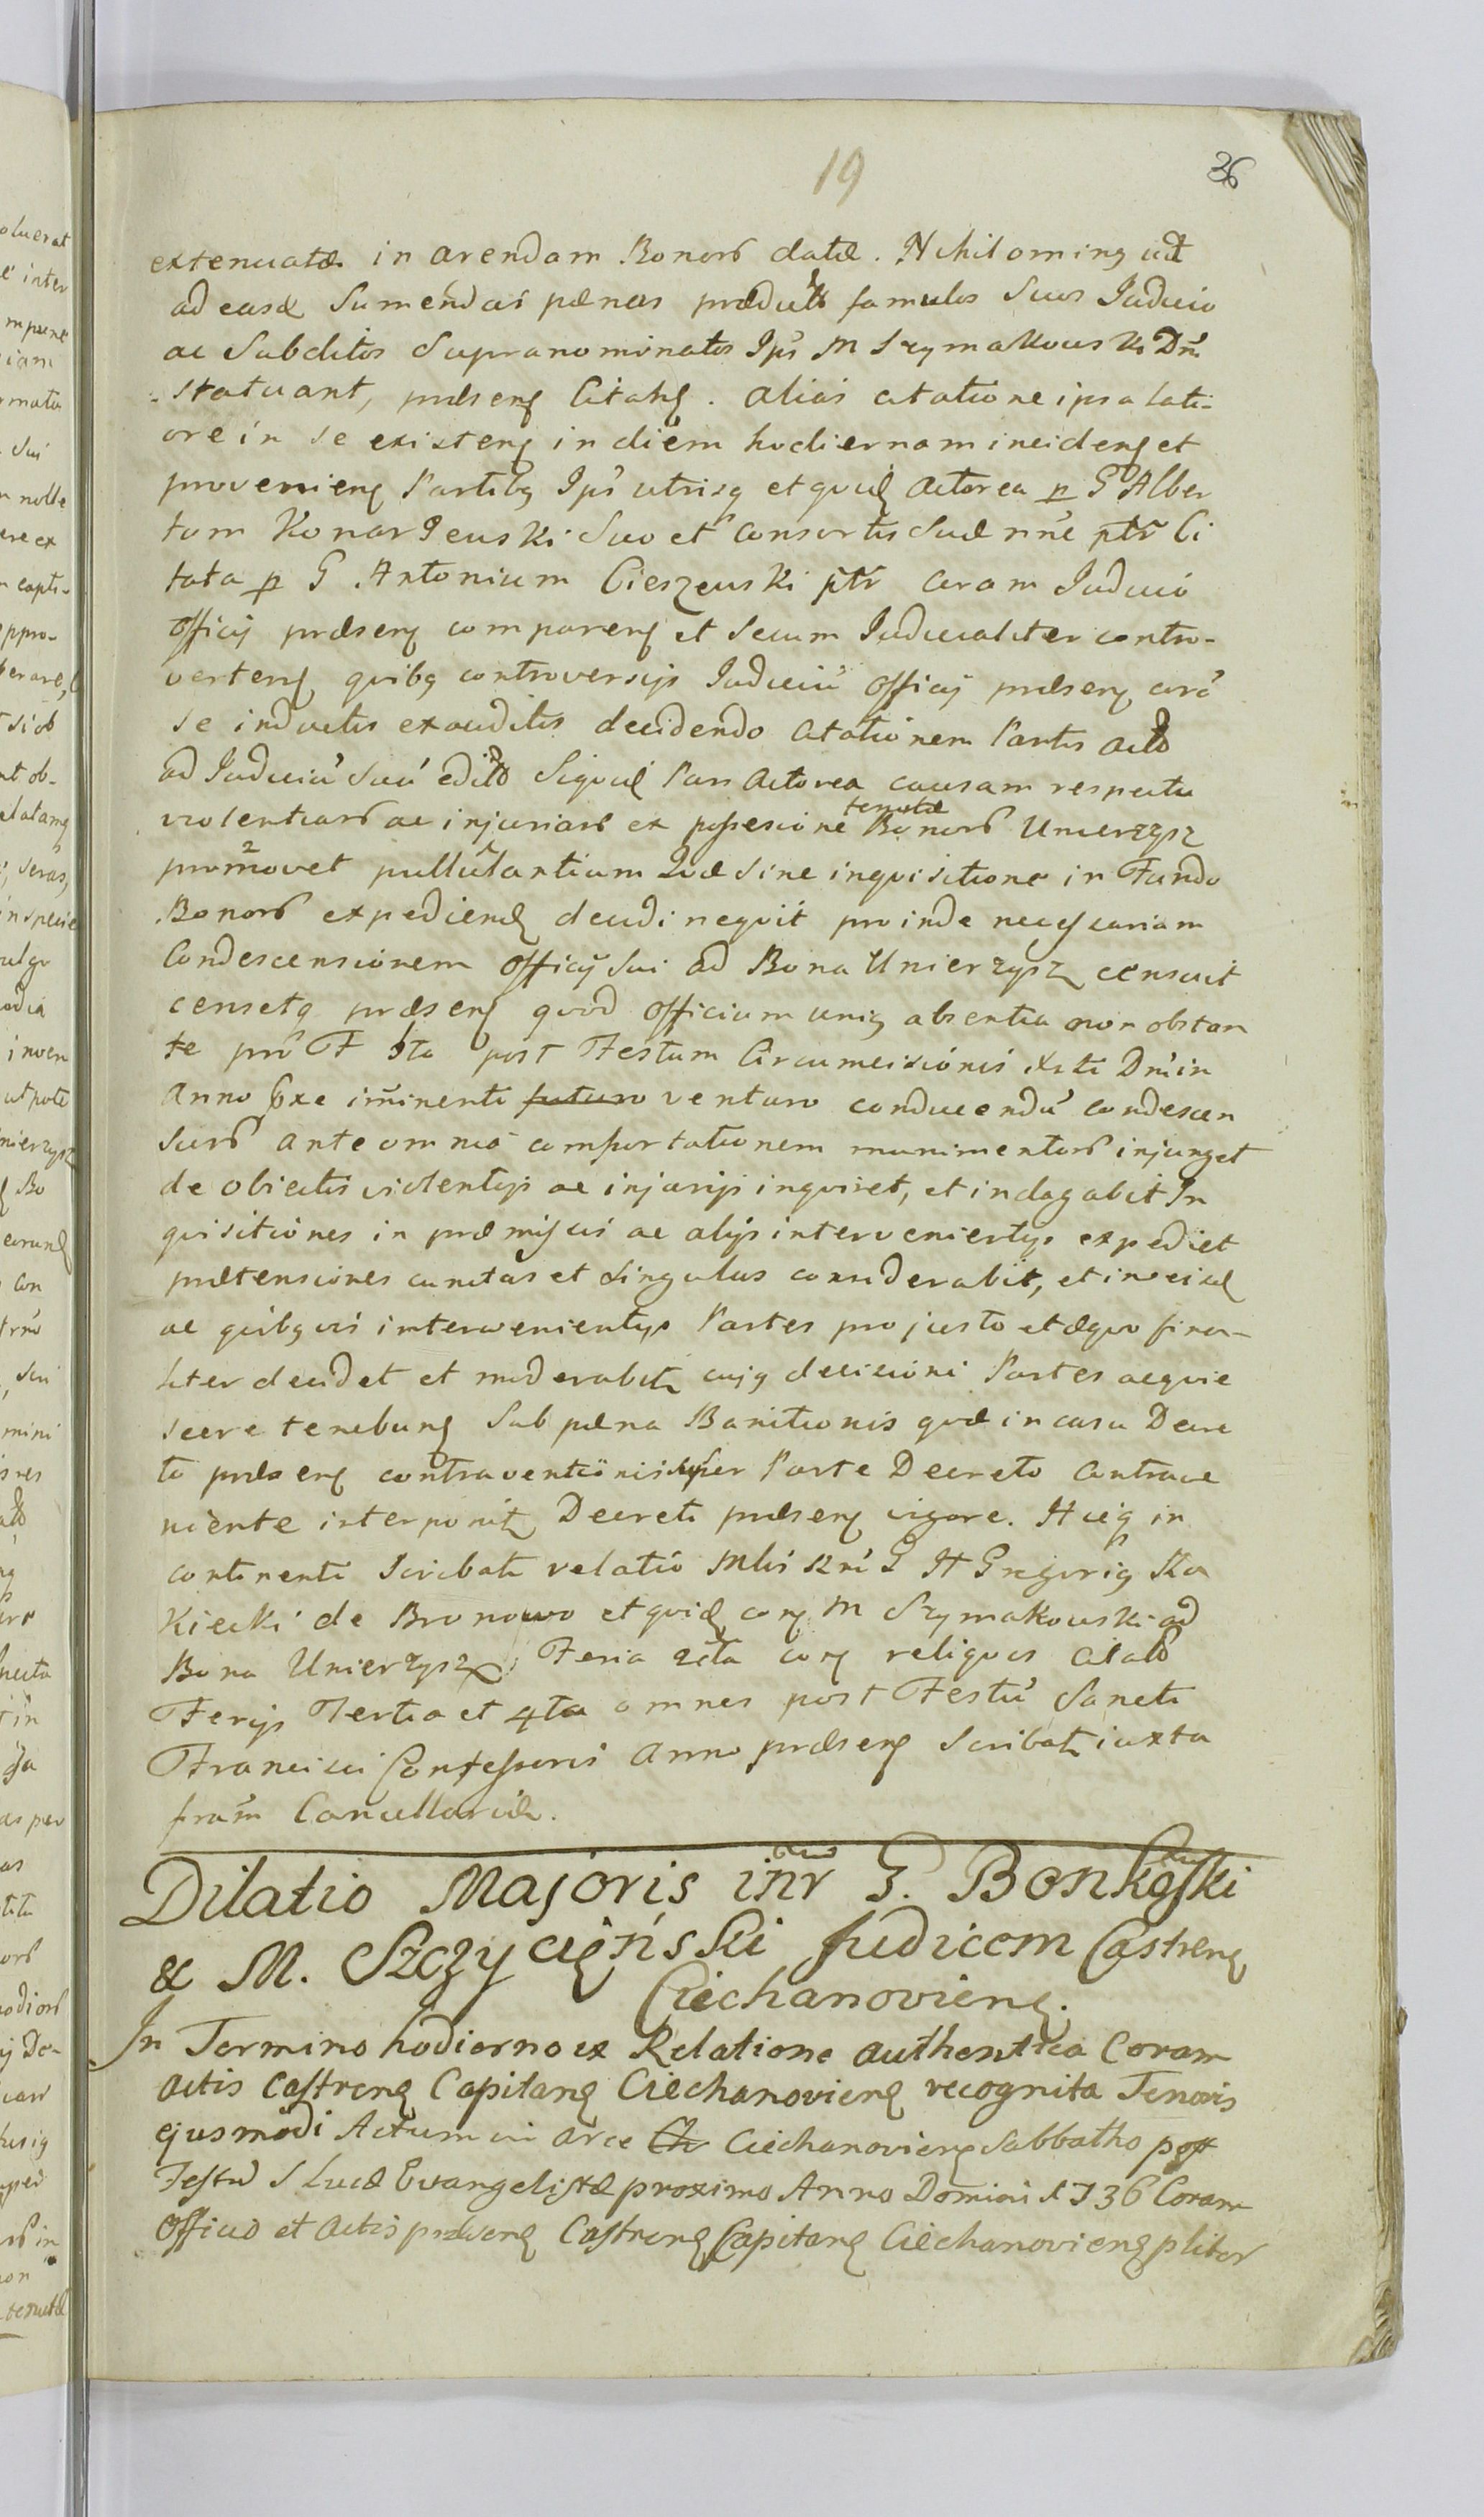 19
36
extenuatæ in arendam Bonorũ datæ. Nihilominꝯ ut
ad easd sumendas pænas prædictos famulos suos Iudicio
ac Subditos Supranominatos Ips M Szymakowski Dñi
statuant, præsenꝭ Citatꝭ. alias citatione ipsa lati-
ore in se existenꝭ in diem hodiernam incidenꝭ et
provenienꝭ Partibꝯ Ips utrisqꝫ et quid Actorea p G Alber
tum Konarzewski suo et consortis suæ nñe ptr Ci
tata p G. Antonium Cieszewski ptr coram Iudicio
officij præsenꝭ comparenꝭ et secum Iudicialiter contro-
vertenꝭ, quibꝯ controversijs Iudiciũ officij præsenꝭ corã
se inductis exauditis decidendo citationem Partis Act
ad Iudiciũ suũ edit Siquid Pars Actorea causam respectu
violentiarũ ac injuriarũ ex possesione tenutæ Bonorũ Unierzysz
promovet pullulantium Quæ sine inquisitione in Fundo
Bonorũ expediend decidi nequit proinde necessariam
Condescensionem officij sui ad Bona Unierzysz censuit
censetqꝫ præsenꝭ quod officium uniꝯ absentia non obstan
te pro F 6ta post Festum Circumcisionis Xsti Dñi in
Anno pxe iminenti futuro venturo conducendũ condescen
surũ ante omnia comportationem munimentorũ injunget
de obiectis violentijs ac injurijs inquiret, et indagabit In
quisitiones in præmissis ac alijs intervenientijs expediet
prætensiones cunctas et singulas considerabit, et in eisd
ac quibꝯvis intervenientijs Partes pro justo et æquo fina-
liter decidet et moderabit cujꝯ decisioni Partes acquie
scere tenebunꝭ Sub pæna Banitionis quæ in casu Decre
to præsenꝭ contraventionis super Parte Decreto contrave
niente interponit Decreti præsenꝭ vigore. Hucqꝫ in
continenti scribat relatio Mlis Rñi G H Gregoriꝯ Ko
kiecki de Bronowo et quid conꝭ M Szymakowski ad
Bona Unierzysz Feria 2da conꝭ reliquos citat
Ferijs Tertia et 4ta omnes post Festũ Sancti
Francisci Confessoris Anno præsenꝭ scribat iuxta
fram̃ Cancellariæ.
Dilatio Majoris inr G. Bonkoſki
& M. Szczycięński Judicem Castrenꝭ
Ciechanovienꝭ.
In Termino hodierno ex Relatione authentica Coram
actis Castrenꝭ Capitanꝭ Ciechanovienꝭ recognita Tenoris
ejusmodi Actum in arce Ch Ciechanovienꝭ Sabbatho post
Festũ S Lucæ Evangelistæ proximo Anno Domini 1736 Coram
Officio et Actis præsenꝭ Castrenꝭ Capitanꝭ Ciechanovienꝭ pliter